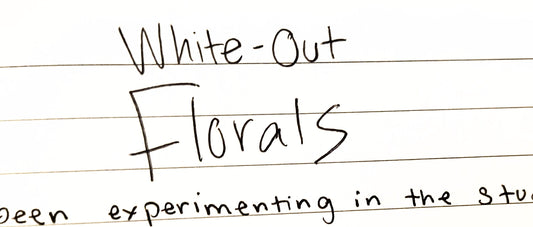 White-Out
Florals
been experimenting in the stu